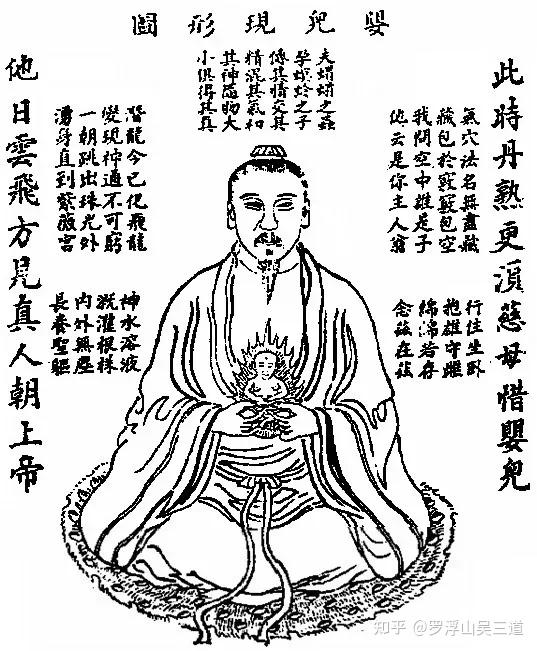 嬰兒現形圖
此時丹熟更須慈母惜嬰兒
氣穴法名無盡藏
藏包於竅竅包空
我問空中誰是子
他云是你主人翁
行住坐卧
抱雄守雌
綿綿若存
念茲在茲
夫蜾蠃之蟲
孕螟蛉之子
傳其情交其
精混其氣和
其神隨物大
小俱得其真
潛龍今已化飛龍
變現神通不可窮
一朝跳出珠光外
湧身直到紫薇宮
神水溶液
溉灌根株
內外無塵
長養聖軀
他日雲飛方見真人朝上帝
知乎 @罗浮山吴三道